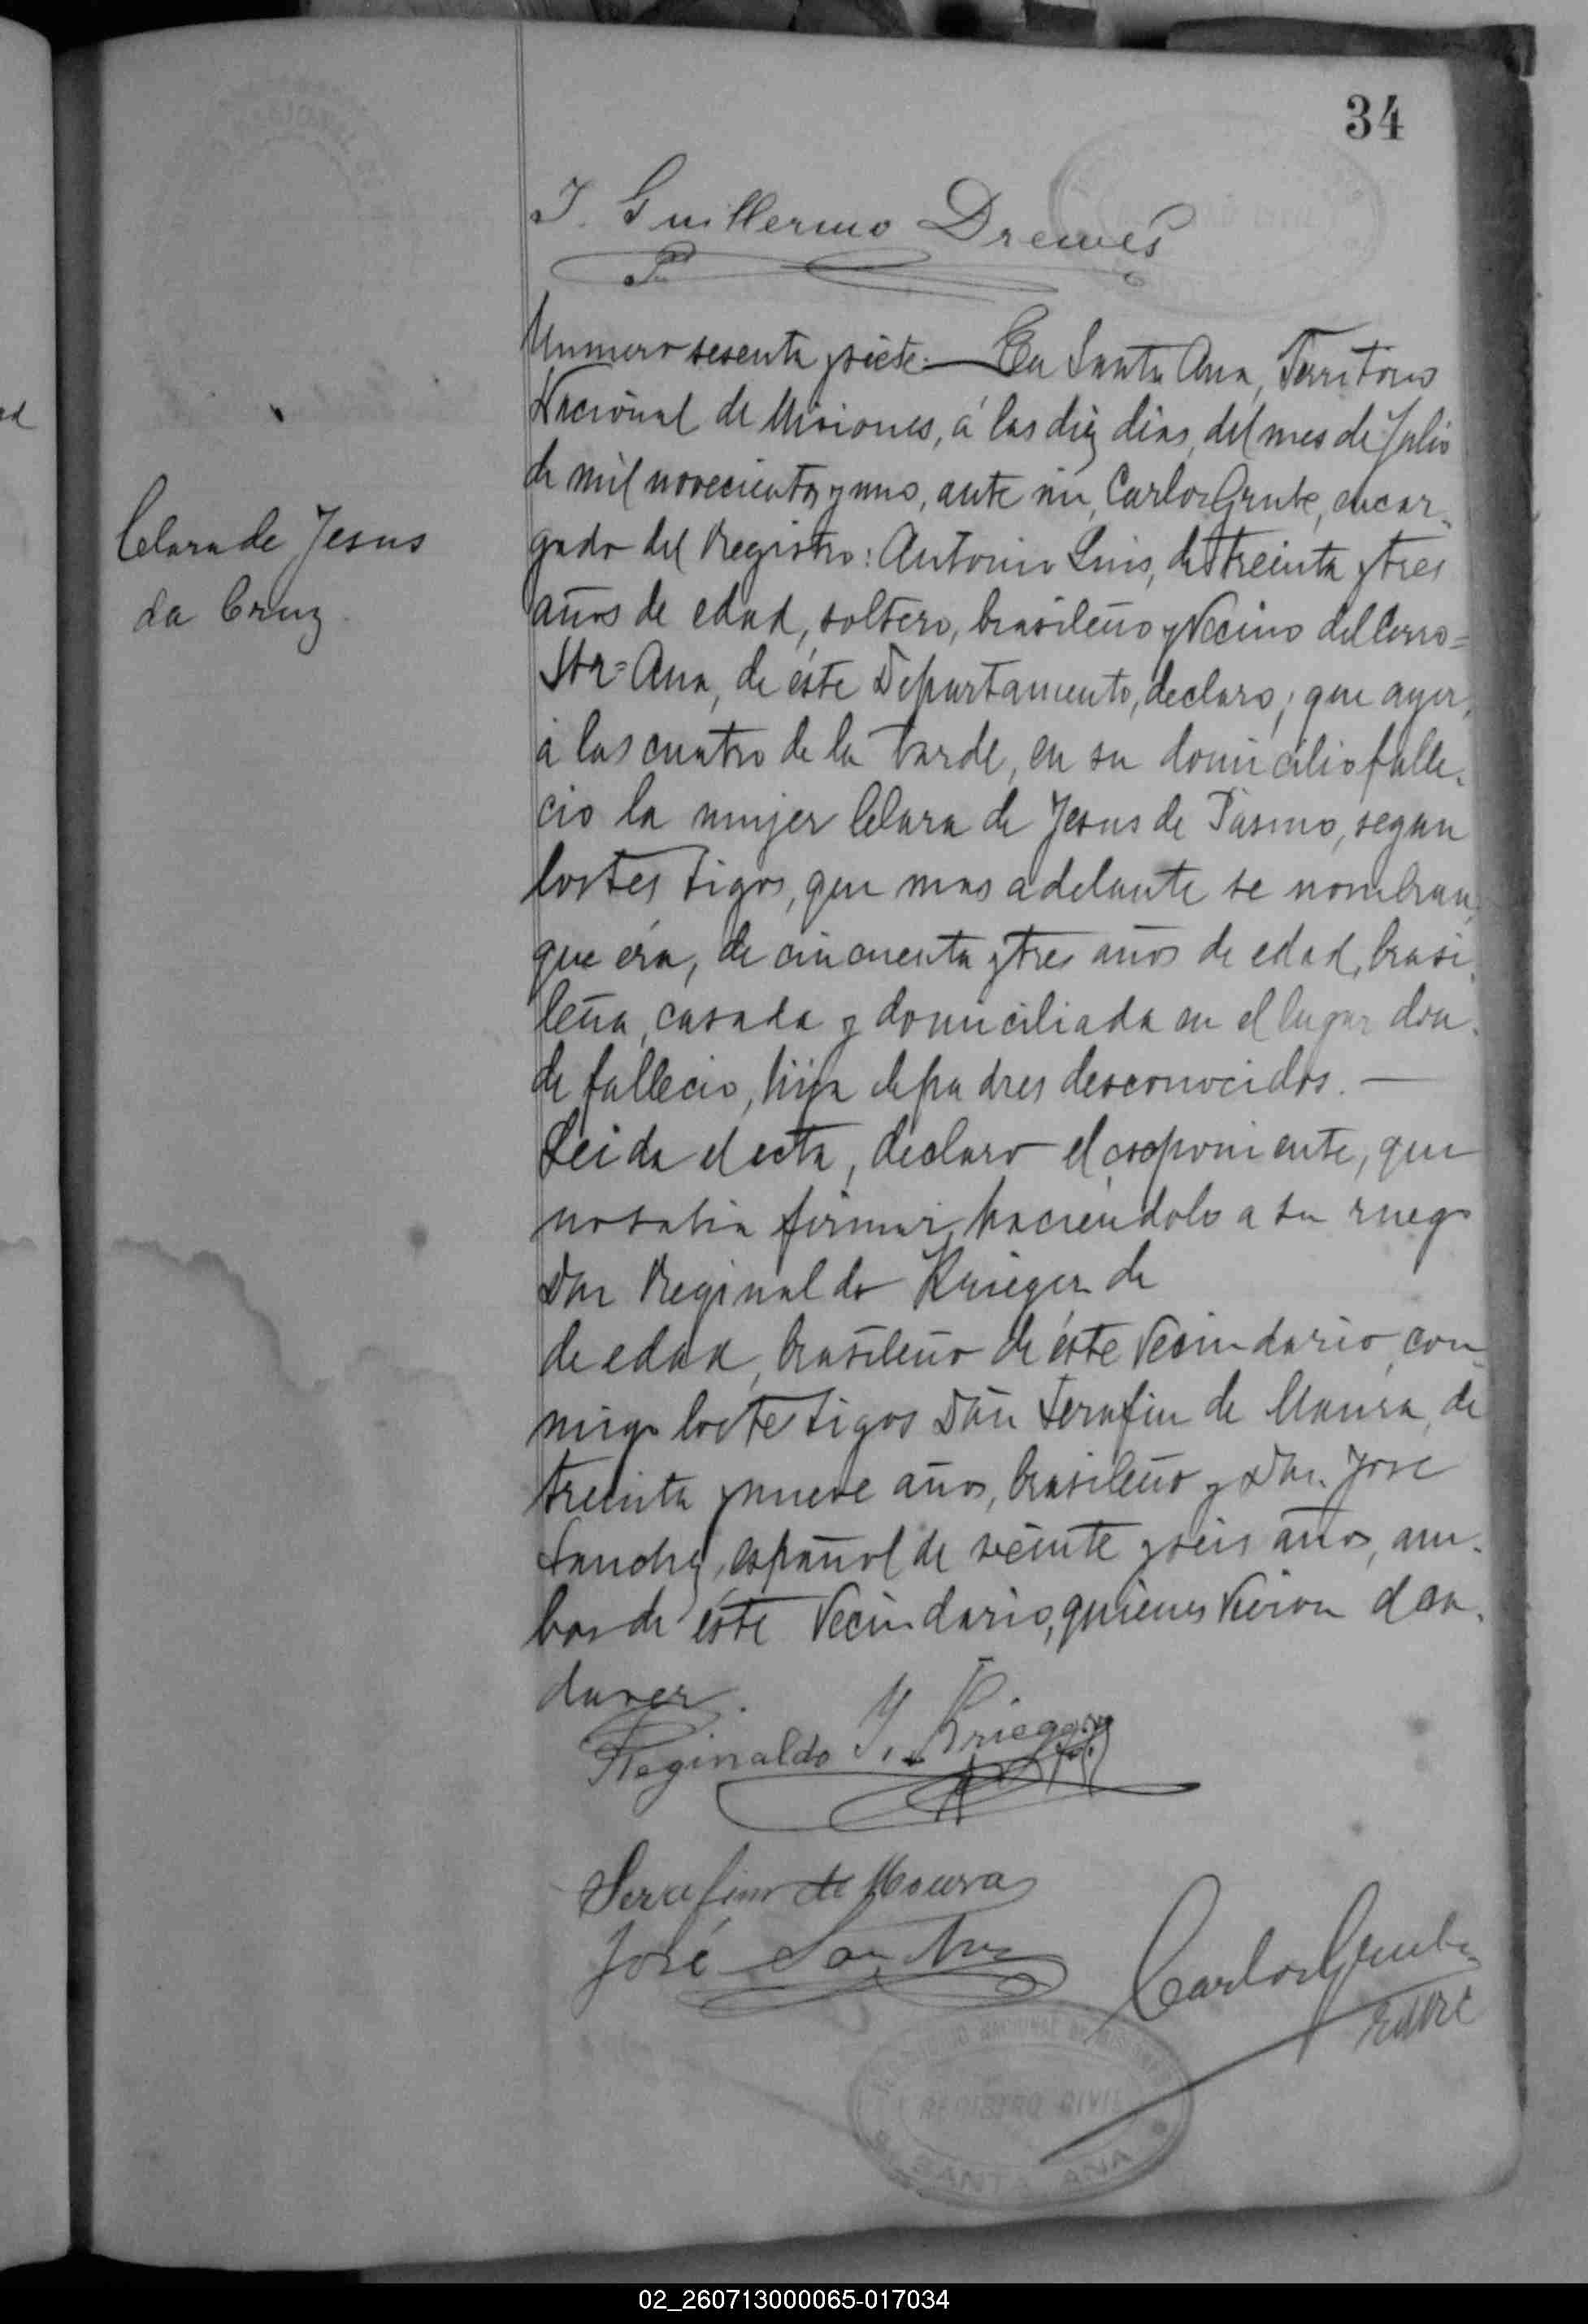 34
J. Guillermo Drewes
Numero sesenta y siete. En Santa Ana, Territorio
Nacional de Misiones, á las diez dias, del mes de Julio
de mil novecientos y uno, ante mi, Carlos Grube, encar-
gado del Registro: Antonio Luis, de treinta y tres
años de edad, soltero, brasileño y Vecino del Cerro=
Sta= Ana, de éste Departamento, declaro; que ayer,
á las cuatro de la tarde, en su domicilio falle-
cio la mujer Clara de Jesus de Pasmo, segun
los testigos, que mas adelante se nombran,
que éra, de cincuenta y tres años de edad, brasi-
leña, casada y domiciliada en el lugar don-
de fallecio, hija de padres desconocidos. —
Leida el acta, declaro el esoponiente, que
no sabia firmar, haciendolo a su ruego
Don Reginaldo Krieger de
de edad, brasileño de éste Vecindario, con
migo los testigos Don Serafin de Maura, de
treinta y nueve años, brasileño y Don. Jose
Sanchez, español de veinte y seis años, am-
bos de éste Vecindario, quienes Vieron el ca-
daver.
Clara de Jesus
da Cruz
Reginaldo J. Krieger
Serafim de Moura
José
Carlos Grube
REGISTRO CIVIL
SANTA ANA
02_260713000065-017034